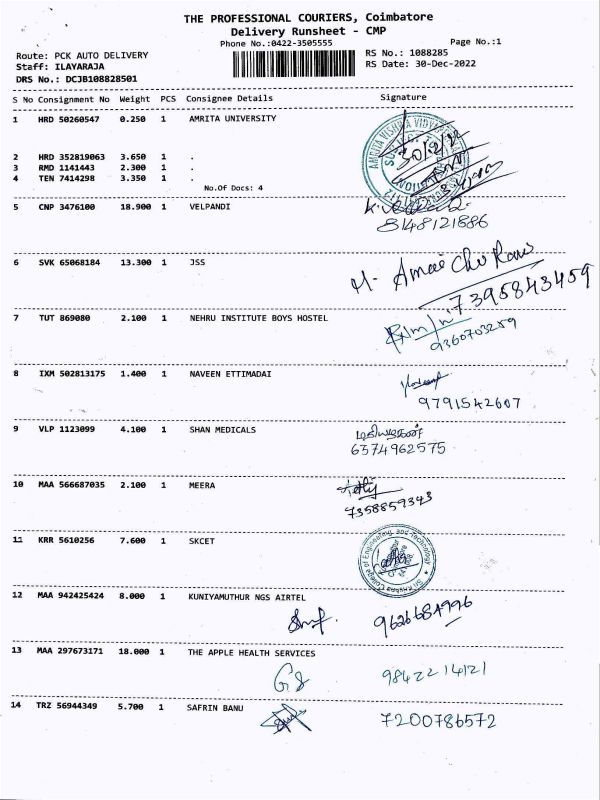 THE PROFESSIONAL COURIERS, Coimbatore
Delivery Runsheet - CMP
Phone No.:0422-3505555 Page No.:1
Route: PCK AUTO DELIVERY RS No.: 1088285
Staff: ILAYARAJA RS Date: 30-Dec-2022
DRS No.: DCJB108828501
S No Consignment No Weight PCS Consignee Details Signature
1 HRD 50260547 0.250 1 AMRITA UNIVERSITY
AMRITA VISHWA VIDYA
30/12/22
2 HRD 352819063 3.650 1 .
3 RMD 1141443 2.300 1 .
4 TEN 7414298 3.350 1 .
No.Of Docs: 4
5 CNP 3476100 18.900 1 VELPANDI
8148121886
6 SVK 65068184 13.300 1 JSS
7395843459
7 TUT 869080 2.100 1 NEHRU INSTITUTE BOYS HOSTEL
9360703259
8 IXM 502813175 1.400 1 NAVEEN ETTIMADAI
9791542607
9 VLP 1123099 4.100 1 SHAN MEDICALS
மதியழகன்
6374962575
10 MAA 566687035 2.100 1 MEERA
7358859343
11 KRR 5610256 7.600 1 SKCET
Sri Krishna College of Engineering and Technology
12 MAA 942425424 8.000 1 KUNIYAMUTHUR NGS AIRTEL
9626684996
13 MAA 297673171 18.000 1 THE APPLE HEALTH SERVICES
9842214121
14 TRZ 56944349 5.700 1 SAFRIN BANU
7200786572